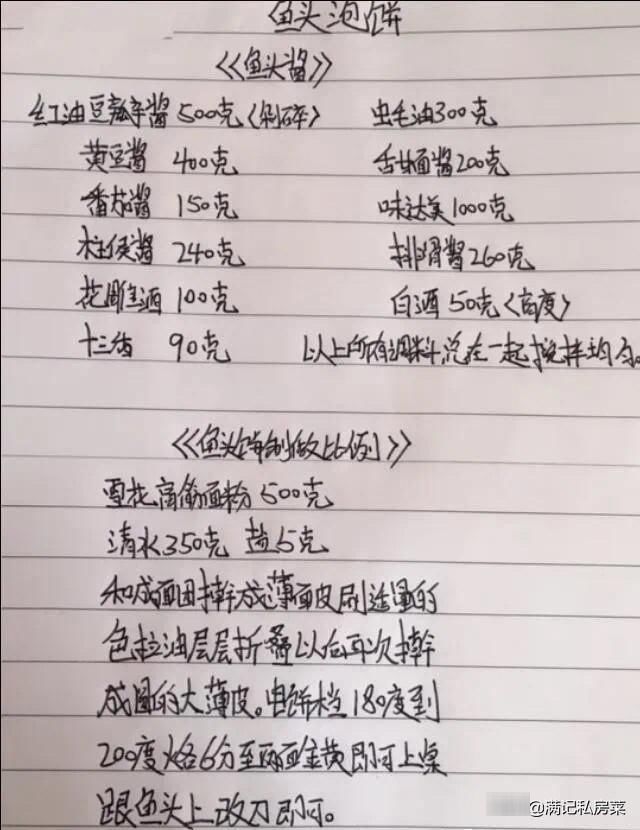 鱼头泡饼
《鱼头酱》
红油豆瓣酱 500克〈剁碎〉 虫毛油300克
黄豆酱 400克 甜面酱200克
番茄酱 150克 味达美1000克
柱侯酱 240克 排骨酱260克
花雕酒 100克 白酒50克〈高度〉
十三香 90克 以上所有调料混在一起搅拌均匀。
《鱼头饼制做比例》
雪花高筋面粉500克
清水350克 盐5克
和成面团擀成薄面皮刷适量的
色拉油层层折叠以后再次擀
成圆的大薄皮。电饼档180度到
200度烙6分至两面金黄即可上桌
跟鱼头上改刀即可。
@满记私房菜